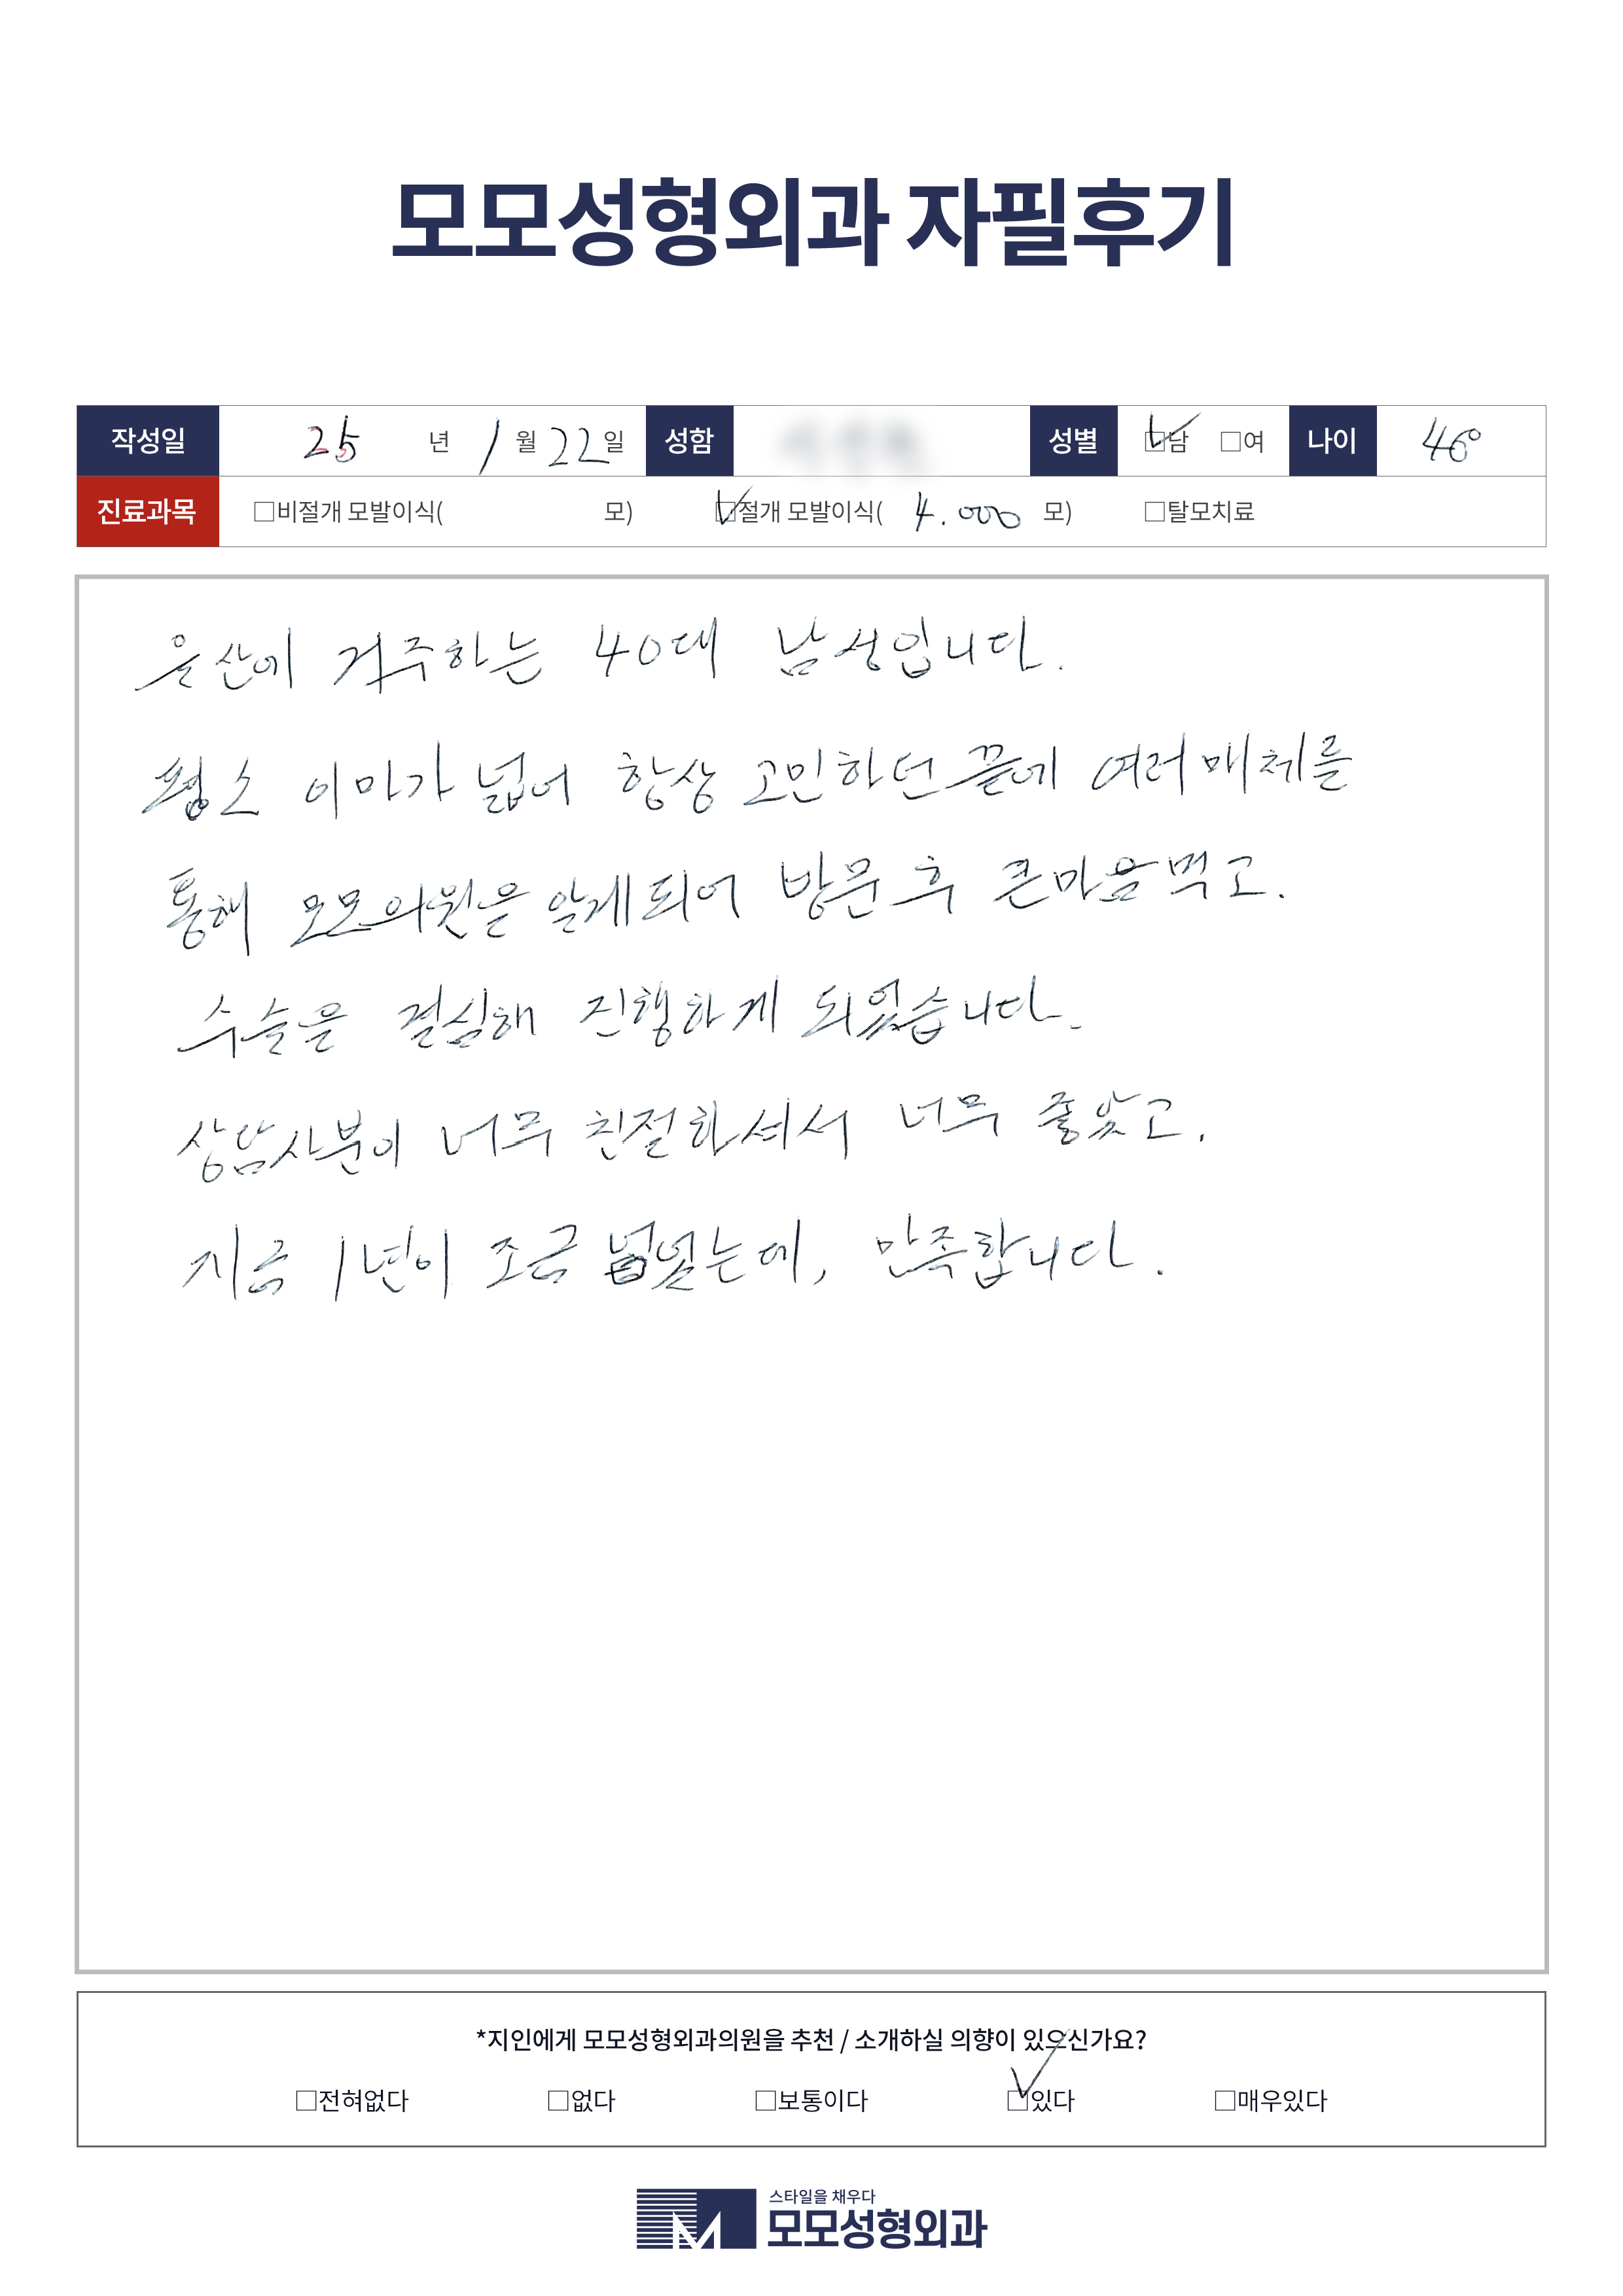 모모성형외과 자필후기
작성일 25년 1월 22일 성함 성별 □남 □여 나이 46º
진료과목 □비절개 모발이식( 모) □절개 모발이식( 4.000 모) □탈모치료
울산에 거주하는 40대 남성입니다.
평소 이마가 넓어 항상 고민하던 끝에 여러매체를
통해 모모의원을 알게되어 방문 후 큰마음먹고.
수술을 결심해 진행하게 되었습니다.
상담사분이 너무 친절하셔서 너무 좋았고.
지금 1년이 조금 넘었는데, 만족합니다.
*지인에게 모모성형외과의원을 추천 / 소개하실 의향이 있으신가요?
□전혀없다 □없다 □보통이다 □있다 □매우있다
스타일을 채우다
모모성형외과